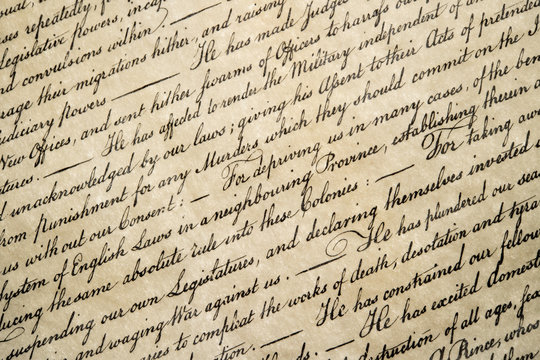 usual,
ses repeatedly, fo
Legislative powers, incap
nd convulsions within
rage their migrations hither, and raising
udiciary powers — He has made Judges
New Offices, and sent hither swarms of Officers to harrass our
tures. — He has affected to render the Military independent of an
d unacknowledged by our laws; giving his Assent to their Acts of pretended
from punishment for any Murders which they should commit on the I
us with out our Consent: — For depriving us in many cases, of the ben
System of English Laws in a neighbouring Province, establishing therein a
ducing the same absolute rule into these Colonies: — For taking awa
suspending our own Legislatures, and declaring themselves invested
and waging War against us. — He has plundered our sea
aries to compleat the works of death, desolation and tyra
— He has constrained our fellow
— He has excited domest
truction of all ages,
A Prince, whos